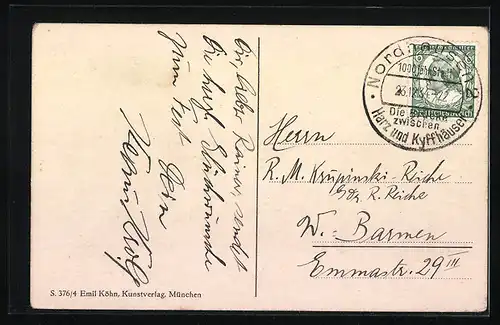 Dir, lieber Rainer, sendet
Die herzl. Glückwünsche
zum Fest Dein
Nordhausen
1000 Jahr
23.12.34
Die
zwischen
Harz und Kyffhäuser
Herrn
R. M. Krupinski-Reiche
R. Reiche
W.-Barmen
Emmastr. 29 III
S. 376/4 Emil Köhn, Kunstverlag, München